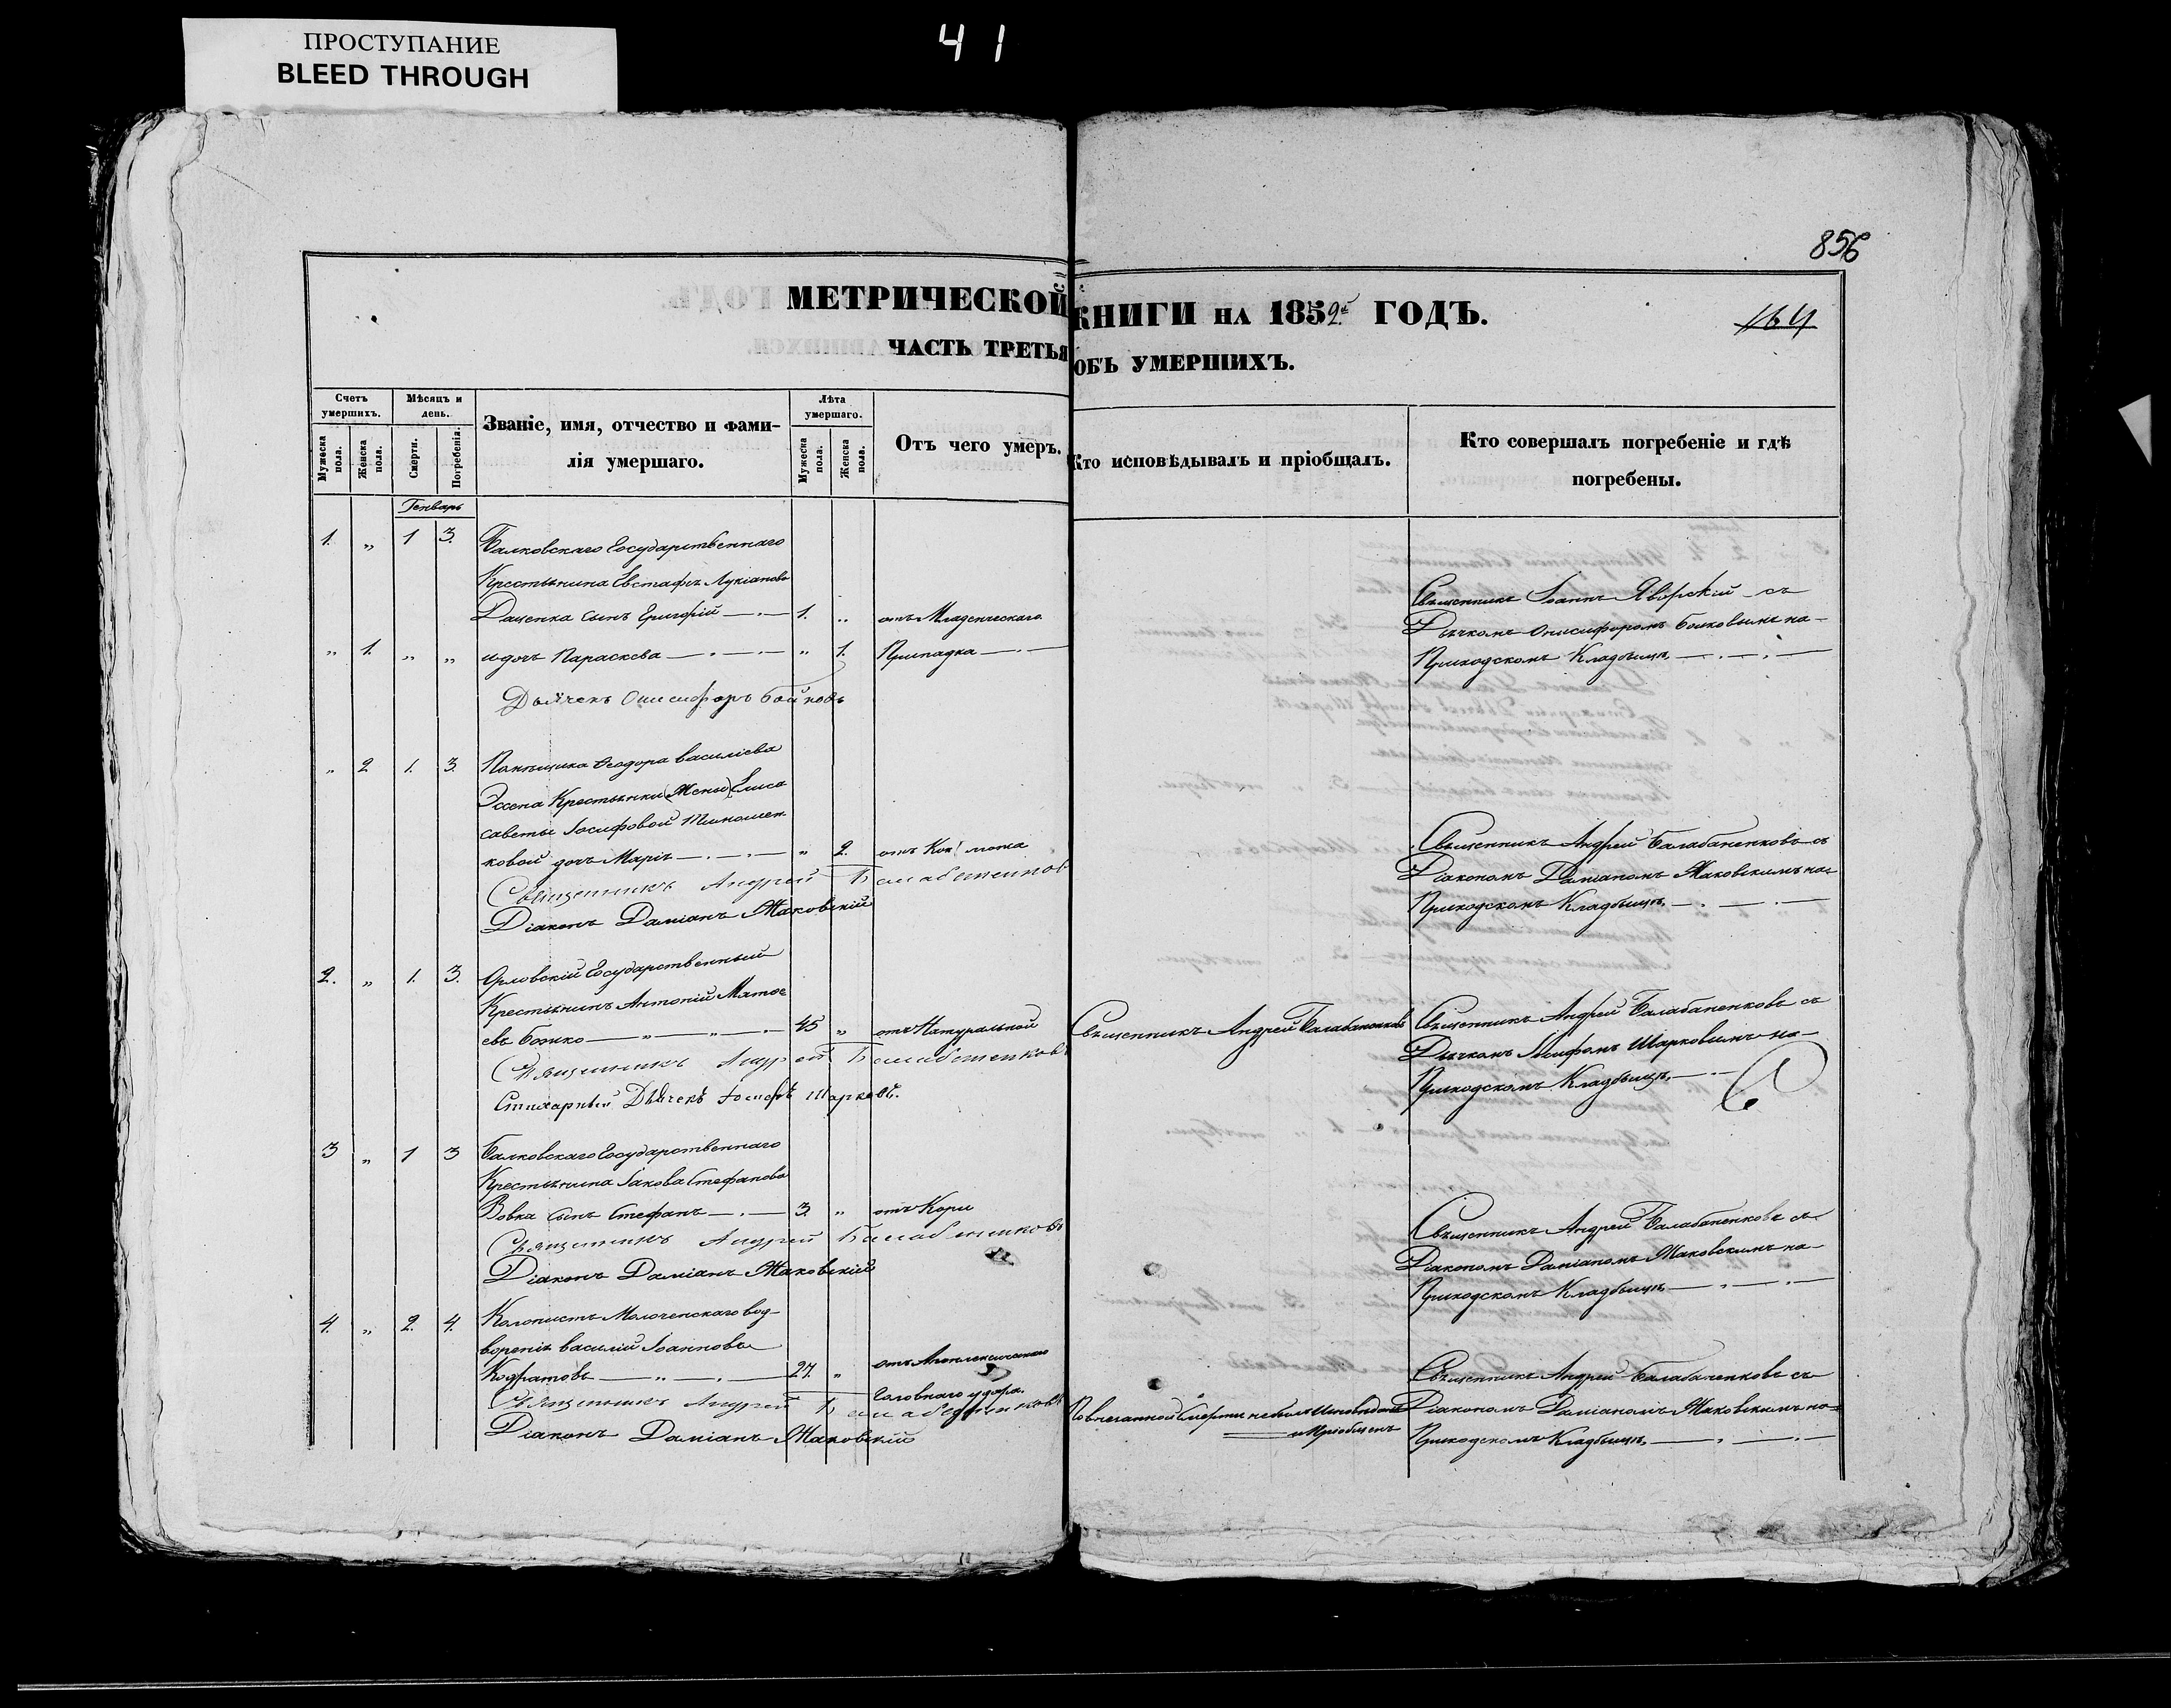 ПРОСТУПАНИЕ
BLEED THROUGH
41
856
164
МЕТРИЧЕСКОЙ КНИГИ НА 1852й ГОДЪ.
ЧАСТЬ ТРЕТЬЯ ОБЪ УМЕРШИХЪ.
Счетъ умершихъ.
Мужеска пола.
Женска пола.
Мѣсяцъ и день.
Смерти.
Погребенія.
Званіе, имя, отчество и фами-
лія умершаго.
Лѣта умершаго.
Мужеска пола.
Женска пола.
Отъ чего умеръ.
Кто исповѣдывалъ и пріобщалъ.
Кто совершалъ погребеніе и гдѣ
погребены.
Генварь
1. „ 1 3. Балковскаго Государственнаго
Крестьянина Евстафія Лукіанова
Даценка сынъ Григорій 1. „ отъ Младенческаго
„ 1. „ „ и дочь Параскева „ 1. Припадка
Священникъ Іоаннъ Яворскій съ
Дьячкомъ Онисифоромъ Бойковымъ на
Приходскомъ Кладбищѣ
Дьячекъ Онисифоръ Бойковъ
„ 2 1. 3. Помѣщика Ѳеодора Василіева
Эссена Крестьянки (Жены) Елиса
саветы Іосифовой
ковой дочь Марія „ 2. отъ
Священникъ Андрей Балабаненковъ съ
Діакономъ Даміаномъ Маковскимъ на
Приходскомъ Кладбищѣ
Священникъ Андрей Балабаненков
Діаконъ Даміанъ Маковскій
2. „ 1. 3. Орловскій Государственный
Крестьянинъ Антоній Матѳе
евъ Божко 45 „ отъ Натуральной
Священникъ Андрей Балабаненковъ
Священникъ Андрей Балабаненковъ съ
Дьячкомъ Іосифомъ Шарковымъ на
Приходскомъ Кладбищѣ
Священникъ Андрей Балабаненковъ
Стихарный Дьячекъ Іосифъ Шарковъ.
3 „ 1 3 Балковскаго Государственнаго
Крестьянина Іакова Стефанова
Вовка сынъ Стефанъ 3. „ отъ Кори
Священникъ Андрей Балабаненковъ съ
Діакономъ Даміаномъ Маковскимъ на
Приходскомъ Кладбищѣ
Священникъ Андрей Балабаненковъ
Діаконъ Даміанъ Маковскій
4. „ 2. 4. Колонистъ Молоченскаго вод-
воренія Василій Іоанновъ
Кодратовъ 27. „ отъ Апоплексическаго
Головнаго удара.
По внезапной смерти небылъ Исповѣданъ
и Пріобщенъ
Священникъ Андрей Балабаненковъ съ
Діакономъ Даміаномъ Маковскимъ на
Приходскомъ Кладбищѣ
Священникъ Андрей Балабаненковъ
Діаконъ Даміанъ Маковскій